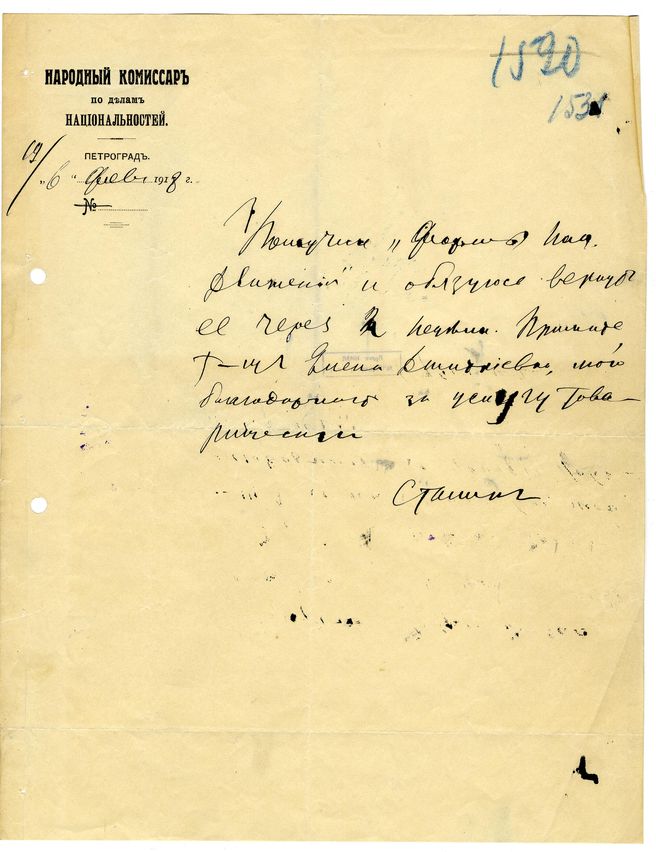 НАРОДНЫЙ КОМИССАРЪ
1590
ПО ДѢЛАМЪ
НАЦІОНАЛЬНОСТЕЙ.
153
ПЕТРОГРАДЪ.
19/
„6“ февр 1918 г.
№
Получил „Формы нац.
движения“ и обязуюсь вернуть
ее через 2 недели. Примите
т-щ Елена Дмитриевна, мою
благодарность за услугу това-
рическую
Сталин